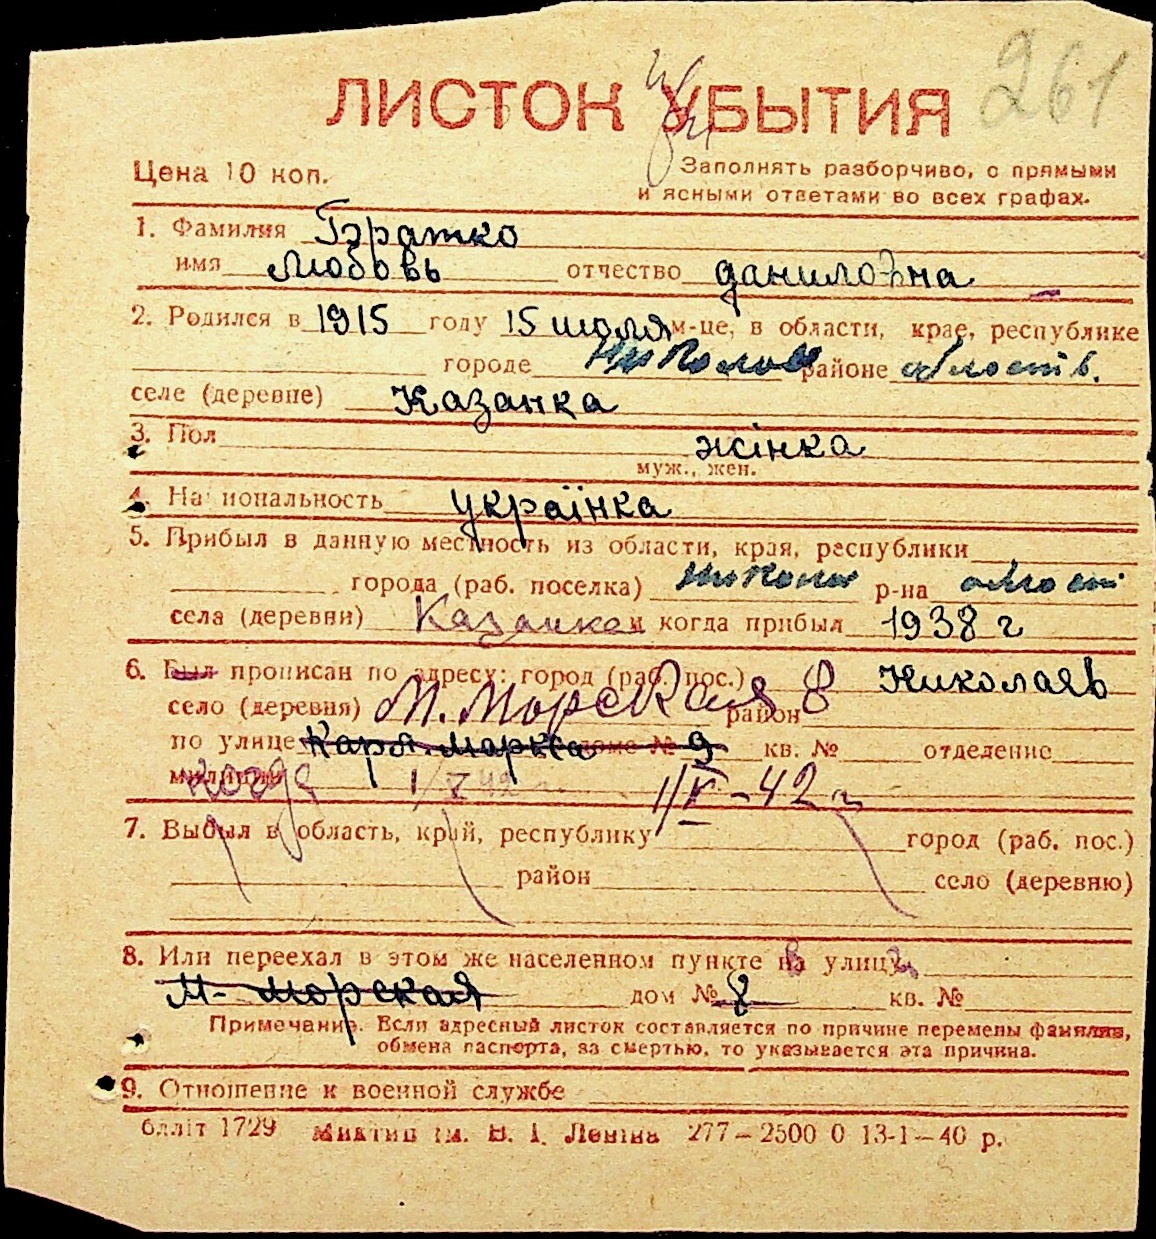 261
ЛИСТОК УБЫТИЯ
Цена 10 коп.
Заполнять разборчиво, с прямыми
и ясными ответами во всех графах.
1. Фамилия Бэратко
имя Любовь отчество даниловна
2. Родился в 1915 году 15 июля м-це, в области, крае, республике
городе Николаев районе область.
селе (деревне) Казанка
3. Пол жінка
муж., жен.
4. Национальность українка
5. Прибыл в данную местность из области, края, республики
города (раб. поселка) Николаев р-на
села (деревни) Казанка и когда прибыл 1938 г
6. Был прописан по адресу: город (раб. пос.) Николаев
село (деревня) М. Морская 8 район
по улице Карл Маркса доме № 9 кв. № отделение
милиции когда 1/V 42 1/V-42 г
7. Выбыл в область, край, республику город (раб. пос.)
район село (деревню)
8. Или переехал в этом же населенном пункте на улицу
М- Морская дом № 8 кв. №
Примечание. Если адресный листок составляется по причине перемены фамилии,
обмена паспорта, за смертью, то указывается эта причина.
9. Отношение к военной службе
блліт 1729 Миктип ім. В. І. Леніна 277—2500 0 13-1—40 р.